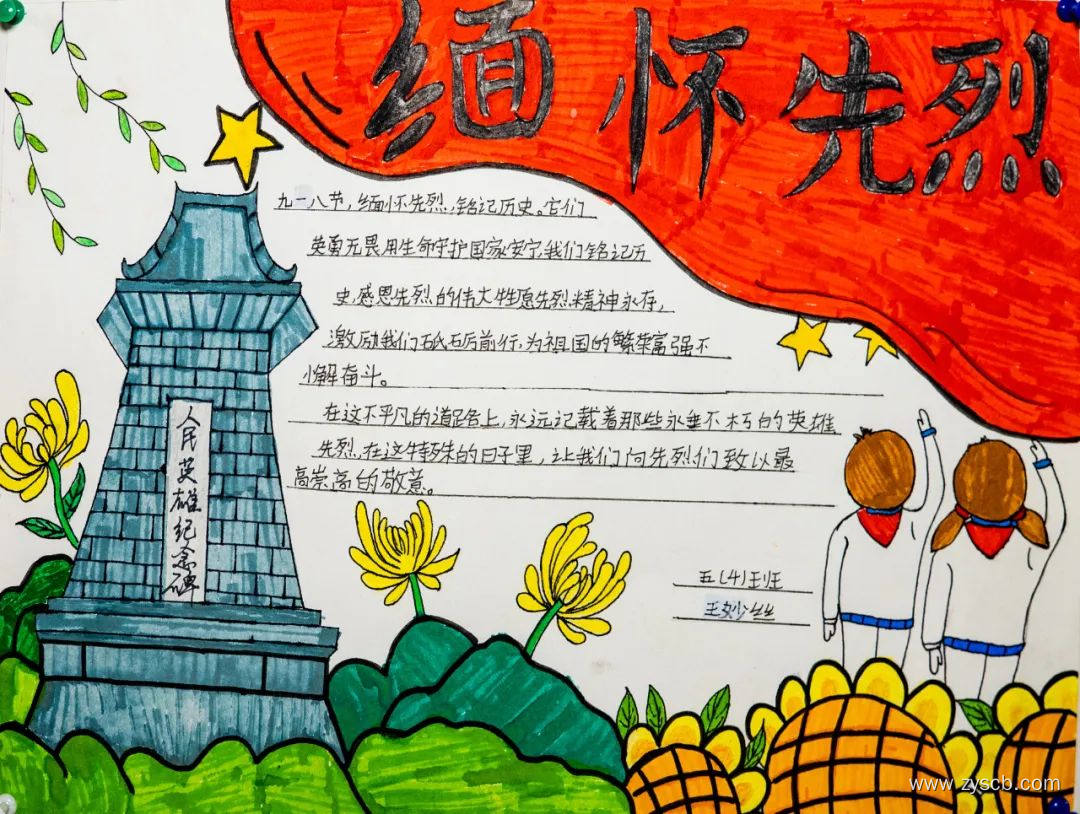 缅怀先烈
九一八节,缅怀先烈,铭记历史。它们
英勇无畏用生命守护国家安宁,我们铭记历
史,感恩先烈的伟大牺愿先烈精神永存,
激励我们砥砺前行,为祖国的繁荣富强不
懈奋斗。
在这不平凡的道路上,永远记载着那些永垂不朽的英雄
先烈,在这特殊的日子里,让我们向先烈们致以最
高崇高的敬意。
人民英雄纪念碑
五(4)班
王妙丝
www.zyscb.com